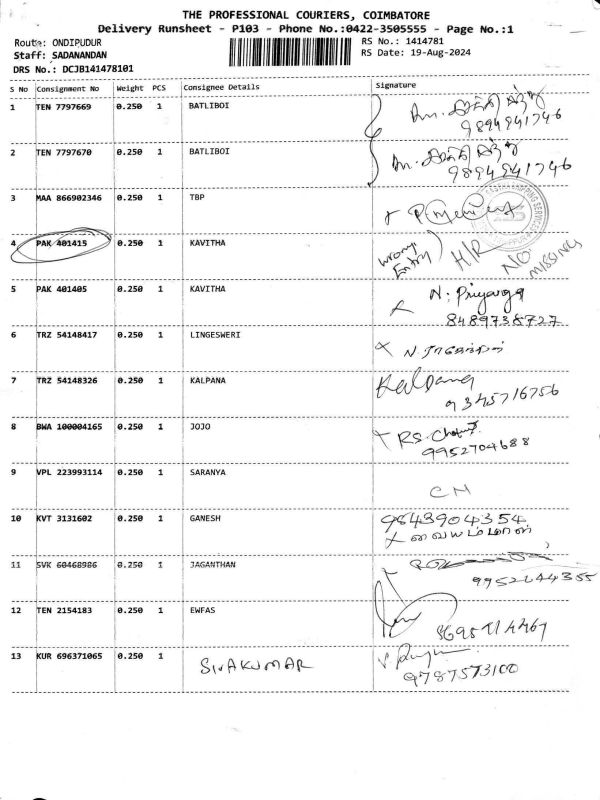 THE PROFESSIONAL COURIERS, COIMBATORE
Delivery Runsheet - P103 - Phone No.:0422-3505555 - Page No.:1
Route: ONDIPUDUR
RS No.: 1414781
Staff: SADANANDAN
RS Date: 19-Aug-2024
DRS No.: DCJB141478101
S No Consignment No Weight PCS Consignee Details Signature
1 TEN 7797669 0.250 1 BATLIBOI
9894941746
2 TEN 7797670 0.250 1 BATLIBOI
9894941746
3 MAA 866902346 0.250 1 TBP
4 PAK 401415 0.250 1 KAVITHA
Wrong Entry) H/R NO MISSING
5 PAK 401405 0.250 1 KAVITHA N. Priyanga
8489738727
6 TRZ 54148417 0.250 1 LINGESWERI
7 TRZ 54148326 0.250 1 KALPANA Kalpana
9345716756
8 BWA 100004165 0.250 1 JOJO
9952704688
9 VPL 223993114 0.250 1 SARANYA
CN
10 KVT 3131602 0.250 1 GANESH 9843904354
11 SVK 60468986 0.250 1 JAGANTHAN
9952644355
12 TEN 2154183 0.250 1 EWFAS
13 KUR 696371065 0.250 1 SIVAKUMAR
9787573100